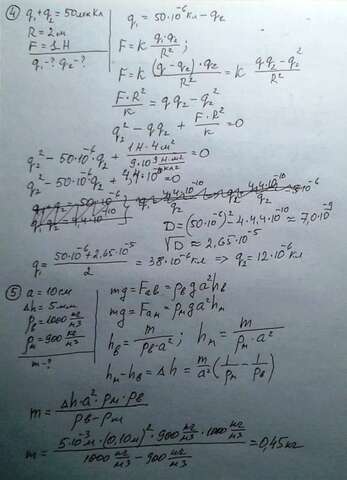 ④ q₁+q₂=50мкКл
R=2м
F=1Н
q₁-? q₂-?
q₁=50·10⁻⁶кл-q₂
F=k q₁·q₂/R²;
F=k (q-q₂)·q₂/R² = k qq₂-q₂²/R²
F·R²/k = qq₂-q₂²
q₂²-qq₂+F·R²/k=0
q₂²-50·10⁻⁶q₂+ 1Н·4м²/9·10⁹ Н·м²/кл² =0
q₂²-50·10⁻⁶q₂+4,4·10⁻¹⁰=0
D=(50·10⁻⁶)²-4·4,4·10⁻¹⁰≈7,0·10⁻⁹
√D≈2,65·10⁻⁵
q₁= 50·10⁻⁶+2,65·10⁻⁵/2 =38·10⁻⁶кл ⇒ q₂=12·10⁻⁶кл
⑤ a=10см
Δh=5мм
ρв=1000 кг/м3
ρм=900 кг/м3
m-?
mg=Fав=ρв g a² hв
mg=Fам=ρм g a² hм
hв= m/ρв·a² ; hм= m/ρм·a²
hм-hв=Δh= m/a² (1/ρм - 1/ρв)
m= Δh·a²·ρм·ρв/ρв-ρм
m= 5·10⁻³м·(0,10м)²·900 кг/м3·1000 кг/м3 / 1000 кг/м3-900 кг/м3 =0,45кг